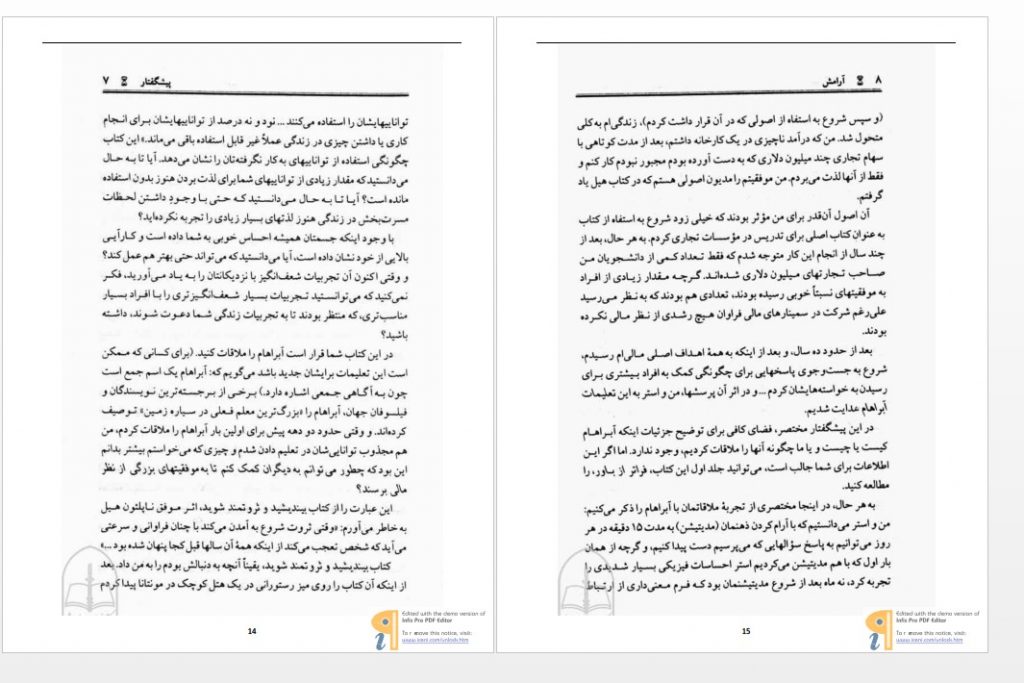 پیشگفتار ۷
تواناییهایشان را استفاده می‌کنند ... نود و نه درصد از تواناییهایشان برای انجام
کاری یا داشتن چیزی در زندگی عملاً غیر قابل استفاده باقی می‌ماند.» این کتاب
چگونگی استفاده از تواناییهای به کار نگرفته‌تان را نشان می‌دهد. آیا تا به حال
می‌دانستید که مقدار زیادی از تواناییهای شما برای لذت بردن هنوز بدون استفاده
مانده است؟ آیا تا به حال می‌دانستید که حتی با وجود داشتن لحظات
مسرت‌بخش در زندگی هنوز لذتهای بسیار زیادی را تجربه نکرده‌اید؟
با وجود اینکه جسمتان همیشه احساس خوبی به شما داده است و کارآیی
بالایی از خود نشان داده است، آیا می‌دانستید که می‌تواند حتی بهتر هم عمل کند؟
و وقتی اکنون آن تجربیات شعف‌انگیز با نزدیکانتان را به یاد می‌آورید، فکر
نمی‌کنید که می‌توانستید تجربیات بسیار شعف‌انگیزتری را با افراد بسیار
مناسب‌تری، که منتظر بودند تا به تجربیات زندگی شما دعوت شوند، داشته
باشید؟
در این کتاب شما قرار است آبراهام را ملاقات کنید. (برای کسانی که ممکن
است این تعلیمات برایشان جدید باشد می‌گویم که: آبراهام یک اسم جمع است
چون به آگاهی جمعی اشاره دارد.) برخی از برجسته‌ترین نویسندگان و
فیلسوفان جهان، آبراهام را «بزرگ‌ترین معلم فعلی در سیاره زمین» توصیف
کرده‌اند. و وقتی حدود دو دهه پیش برای اولین بار آبراهام را ملاقات کردم، من
هم مجذوب توانایی‌شان در تعلیم دادن شدم و چیزی که می‌خواستم بیشتر بدانم
این بود که چطور می‌توانم به دیگران کمک کنم تا به موفقیتهای بزرگی از نظر
مالی برسند؟
این عبارت را از کتاب بیندیشید و ثروتمند شوید، اثر موفق ناپلئون هیل
به خاطر می‌آورم: «وقتی ثروت شروع به آمدن می‌کند با چنان فراوانی و سرعتی
می‌آید که شخص تعجب می‌کند از اینکه همهٔ آن سالها قبل کجا پنهان شده بود ...»
کتاب بیندیشید و ثروتمند شوید، یقیناً آنچه به دنبالش بودم را به من داد. بعد
از اینکه آن کتاب را روی میز رستورانی در یک هتل کوچک در مونتانا پیدا کردم
14
Edited with the demo version of
Infix Pro PDF Editor
To remove this notice, visit:
www.iceni.com/unlock.htm
۸ آرامش
(و سپس شروع به استفاه از اصولی که در آن قرار داشت کردم)، زندگی‌ام به کلی
متحول شد. من که درآمد ناچیزی در یک کارخانه داشتم، بعد از مدت کوتاهی با
سهام تجاری چند میلیون دلاری که به دست آورده بودم مجبور نبودم کار کنم و
فقط از آنها لذت می‌بردم. من موفقیتم را مدیون اصولی هستم که در کتاب هیل یاد
گرفتم.
آن اصول آن‌قدر برای من مؤثر بودند که خیلی زود شروع به استفاه از کتاب
به عنوان کتاب اصلی برای تدریس در مؤسسات تجاری کردم. به هر حال، بعد از
چند سال از انجام این کار متوجه شدم که فقط تعداد کمی از دانشجویان من
صاحب تجارتهای میلیون دلاری شده‌اند. گرچه مقدار زیادی از افراد
به موفقیتهای نسبتاً خوبی رسیده بودند، تعدادی هم بودند که به نظر می‌رسید
علی‌رغم شرکت در سمینارهای مالی فراوان هیچ رشدی از نظر مالی نکرده
بودند.
بعد از حدود ده سال، و بعد از اینکه به همهٔ اهداف اصلی مالی‌ام رسیدم،
شروع به جست‌وجوی پاسخهایی برای چگونگی کمک به افراد بیشتری برای
رسیدن به خواسته‌هایشان کردم ... و در اثر آن پرسشها، من و استر به این تعلیمات
آبراهام هدایت شدیم.
در این پیشگفتار مختصر، فضای کافی برای توضیح جزئیات اینکه آبراهام
کیست یا چیست و یا ما چگونه آنها را ملاقات کردیم، وجود ندارد. اما اگر این
اطلاعات برای شما جالب است، می‌توانید جلد اول این کتاب، فراتر از باور، را
مطالعه کنید.
به هر حال، در اینجا مختصری از تجربهٔ ملاقاتمان با آبراهام را ذکر می‌کنیم:
من و استر می‌دانستیم که با آرام کردن ذهنمان (مدیتیشن) به مدت ۱۵ دقیقه در هر
روز می‌توانیم به پاسخ سؤالهایی که می‌پرسیم دست پیدا کنیم، و گرچه از همان
بار اول که با هم مدیتیشن می‌کردیم استر احساسات فیزیکی بسیار شدیدی را
تجربه کرد، نه ماه بعد از شروع مدیتیشنمان بود که فرم معنی‌داری از ارتباط
15
Edited with the demo version of
Infix Pro PDF Editor
To remove this notice, visit:
www.iceni.com/unlock.htm